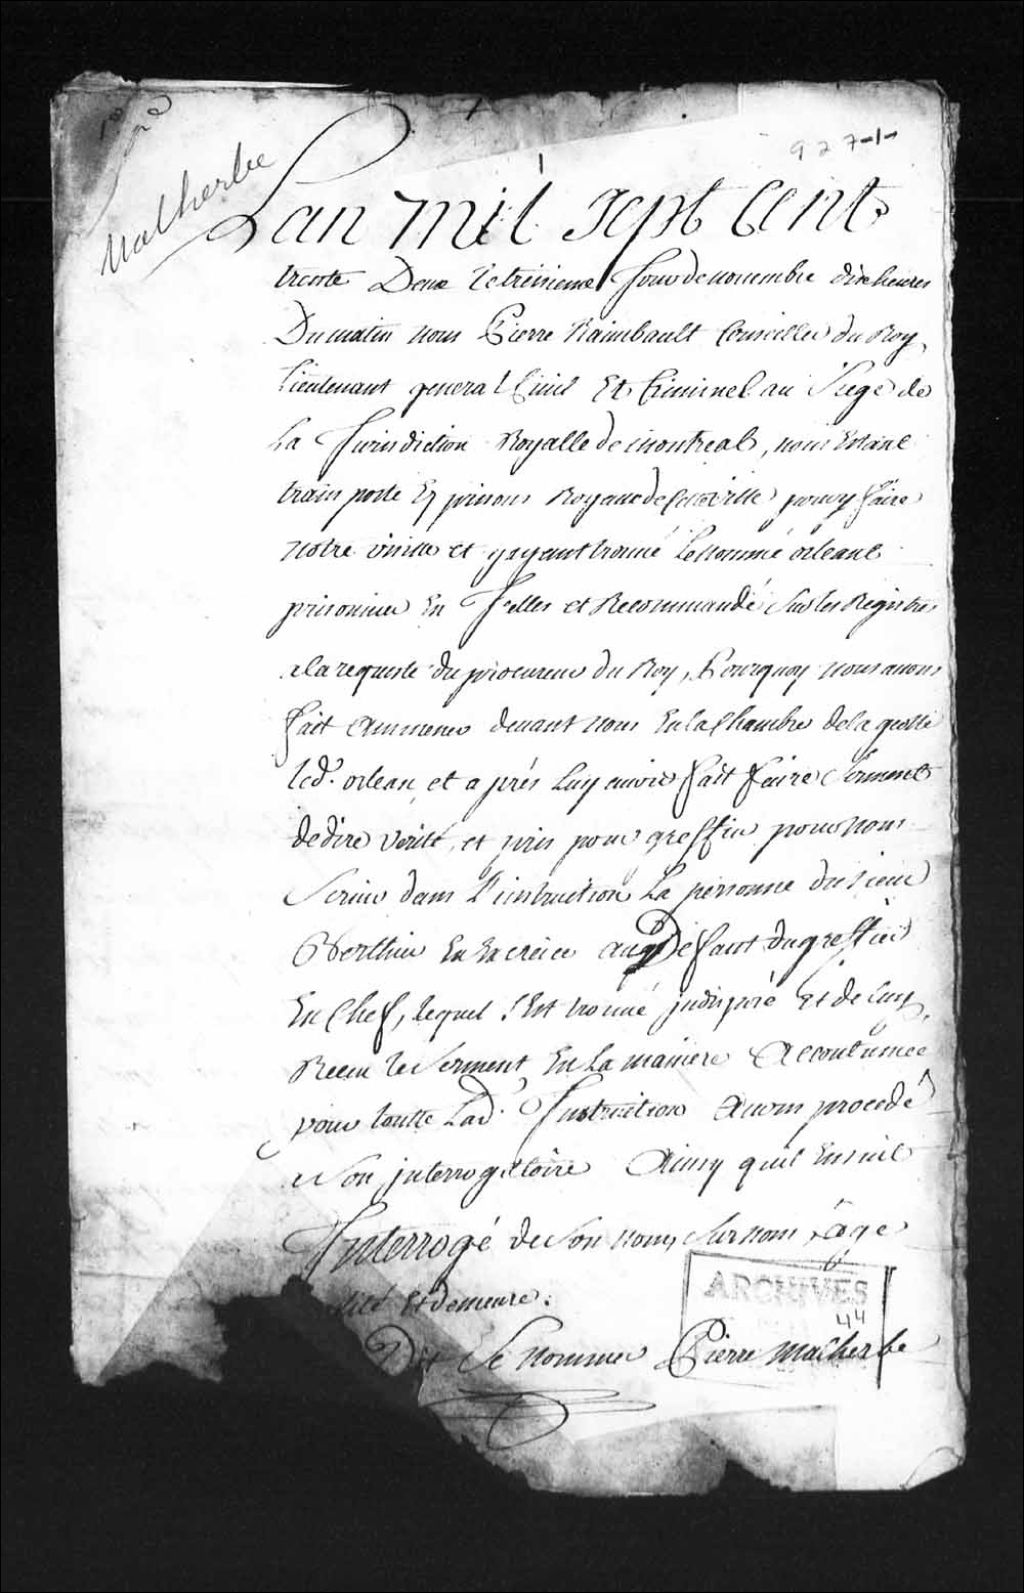 Malherbe
927-1-
Lan mil sept Cent
trente Deux le treisieme Jour de novembre dix heures
Du matin nous Pierre Raimbault Conseiller du Roy,
Lieutenant general Civil Et Criminel au Siege de
La Jurisdiction Royalle de montreal, nous Estant
transporté Es prisons Royaux de Cette ville pour y faire
notre visitte et y ayant trouvé Le nommé orleans
prisonnier En Icelles et Recommandé Sur les Registres
a la requeste du procureur du Roy, Pourquoy nous avons
fait Ammener devant nous En la Chambre de la geolle
led. orlean, et aprés Luy avoir fait faire Serment
de dire verité, et pris pour greffier pour nous
Servir dans L'instruction La personne du Sieur
Porlhier au deffaut du greffier
En Chef, lequel S'Est trouvé indisposé Et de luy
Receu le Serment En La maniere Accoutumée
pour toutte Lad. Instruction Avons procedé
a Son interrogatoire Ainsy quil Ensuit
Interrogé de Son nom, Surnom, âge
Et demeure.
ARCHIVES
44
Dit Se nommer Pierre malherbe